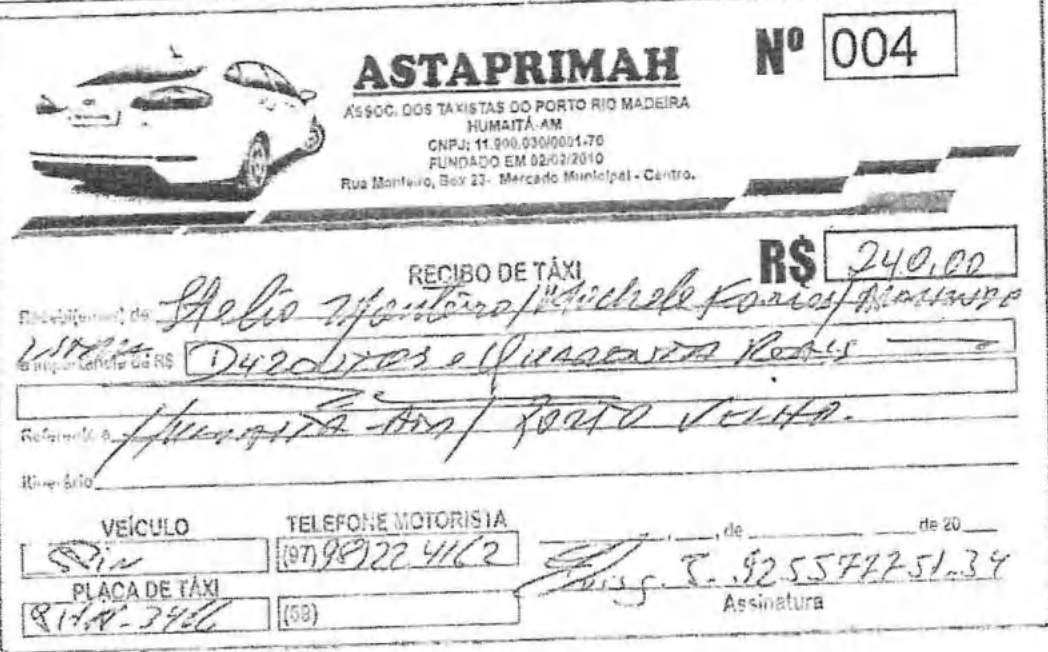 ASTAPRIMAH
Nº 004
ASSOC. DOS TAXISTAS DO PORTO RIO MADEIRA
HUMAITÁ-AM
CNPJ: 11.900.030/0001-70
FUNDADO EM 02/02/2010
Rua Monteiro, Box 23- Mercado Municipal - Centro.
RECIBO DE TÁXI
R$ 240,00
Recebi(emos) de: Stelio Monteiro/Michele
a importância de R$ Duzentos e Quarenta Reais
Referente a Humaitá-Am/ Porto Velho.
Itinerário
VEÍCULO
TELEFONE MOTORISTA
Spin
(97) 98122 4162
, de de 20
PLACA DE TÁXI
(69)
Assinatura